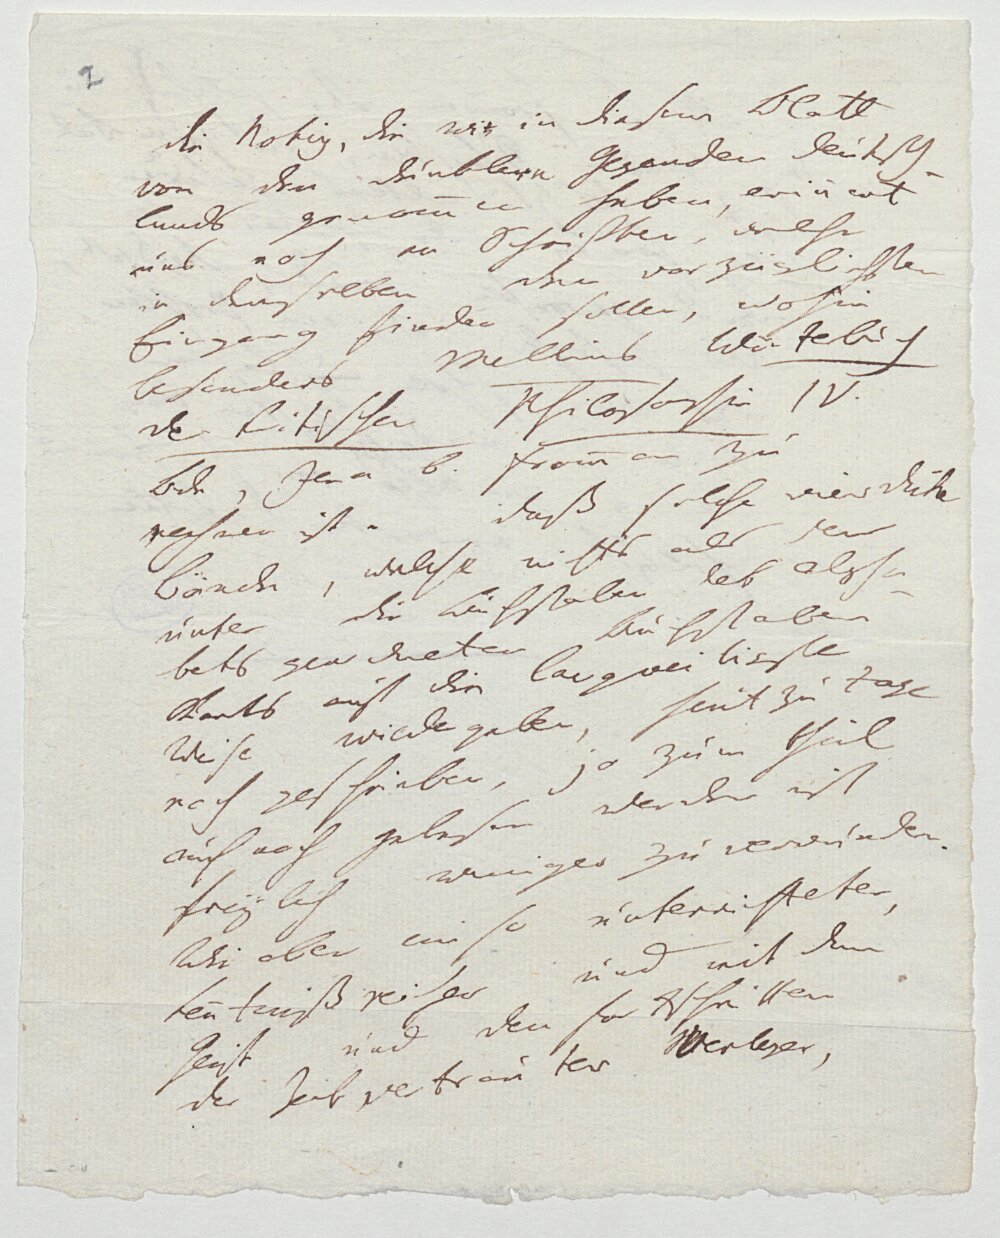 2
die Notiz, die wir in diesem Blatt
von den dunklern Gegenden Deutsch-
lands genom̅en haben, erin̅ert
uns noch an Schriften, welche
in denselben den vorzüglichsten
Eingang finden sollen, wohin
besonders Mellins Wörterbuch
der kritischen Philosophie IV.
Bde, Jena b. From̅an zu
rechnen ist. daß solche vier dicke
Bände, welche nichts als den
unter die Buchstaben des alpha-
bets geordneten Buchstaben
Kants auf die langweiligste
Weise wiedergeben, heut zu tage
noch geschrieben, ja zum theil
auch noch gelesen werden ist
freylich weniger zu verwundern.
Wie aber ein so unterrichteter,
ken̅tnißreicher und mit dem
Geist und den fortschritten
der Zeit vertrauter Verleger,